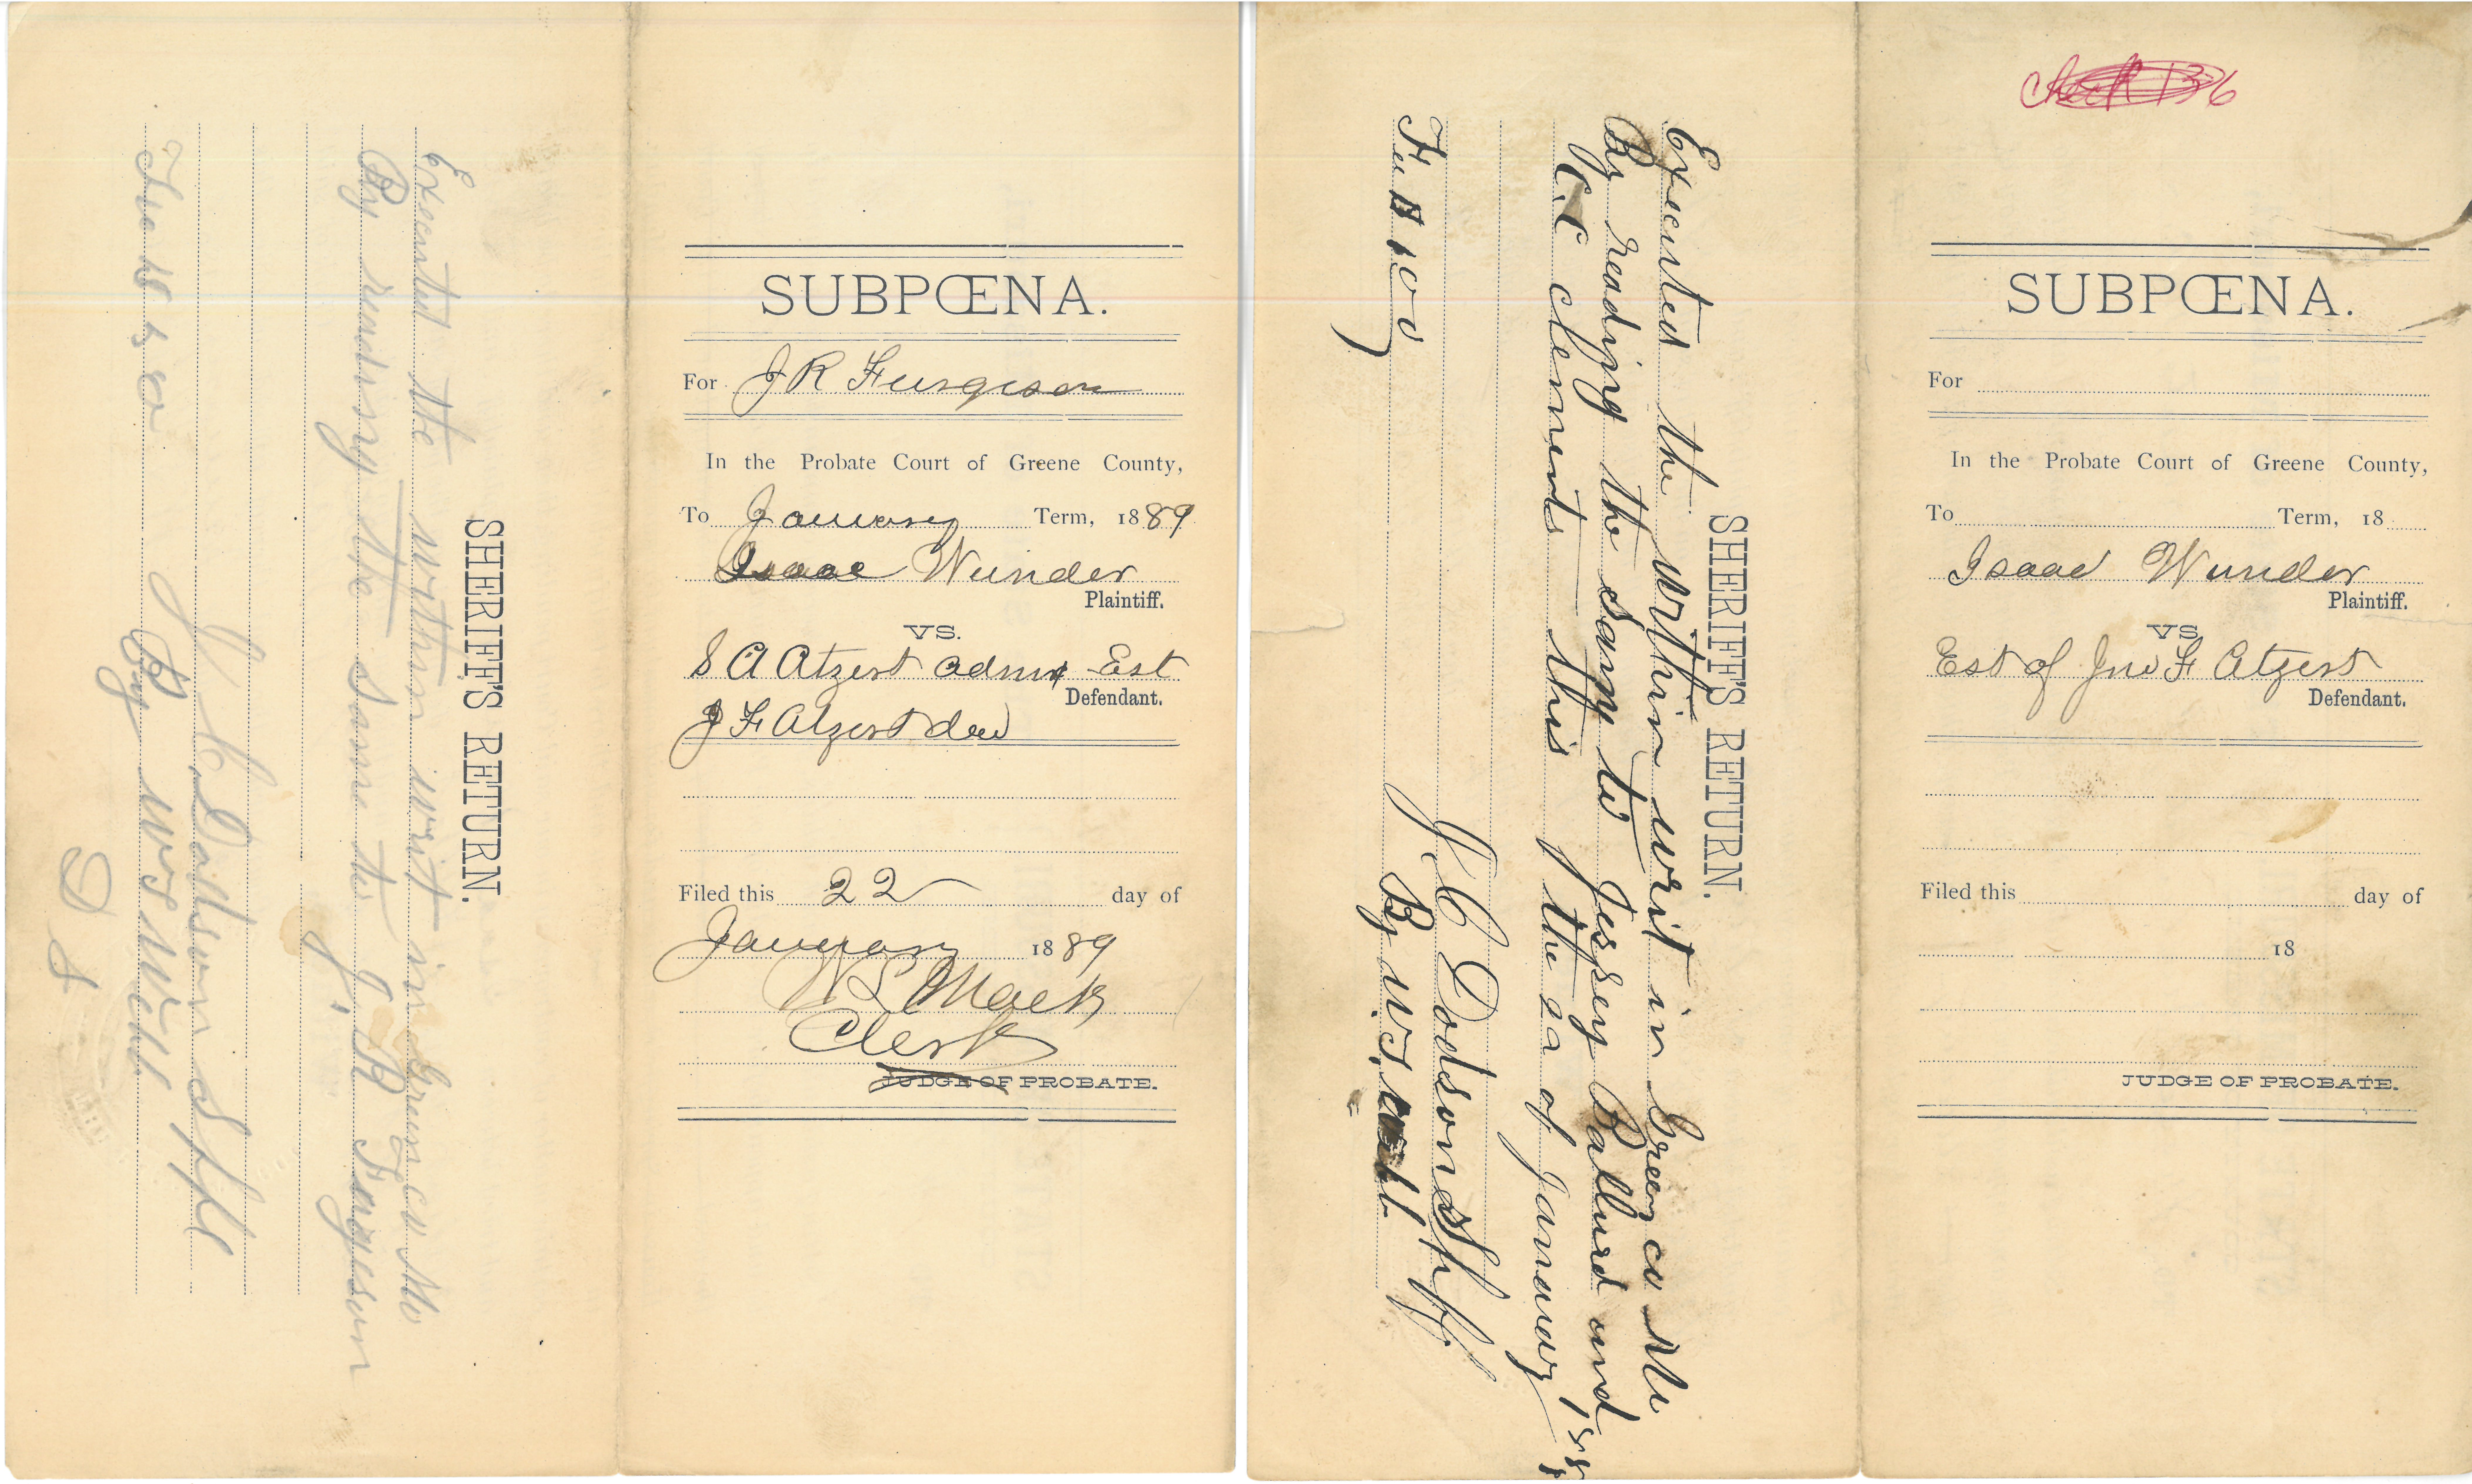 SHERIFF'S RETURN.
Executed the within writ in Green co Mo
By reading the same to J. R Furgeson
Fee $ 50
J C Dodson Shff
By W S Webb
D S
SUBPŒNA.
For J R Furgeson
In the Probate Court of Greene County,
To January Term, 1889
Isaac Wunder
Plaintiff.
VS.
S A Atzert admx Est
Defendant.
J F Atzert decd
Filed this 22 day of
January 1889
W L Mack
Clerk
JUDGE OF PROBATE.
SHERIFF'S RETURN.
Executed the within writ in Green co Mo
By reading the same to Jessey Ballurd and
C. C clements this the 22 of January 188
Fee $ 1 00
J C Dodson Shff.
By W. S.
check 136
SUBPŒNA.
For
In the Probate Court of Greene County,
To Term, 18
Isaac Wunder
Plaintiff.
VS
Est of Jno F Atzert
Defendant.
Filed this day of
18
JUDGE OF PROBATE.